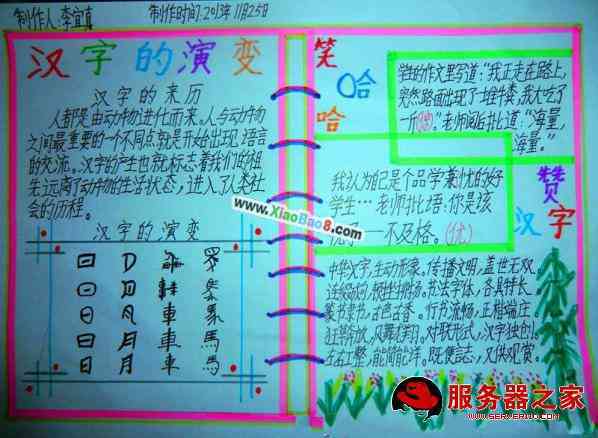 制作人:李宜真
制作时间:2013年11月25日
汉字的演变
汉字的来历
人都是由动物进化而来。人与动物
之间最重要的一个不同点就是开始出现语言
的交流。汉字的产生也就标志着我们的祖
先远离了动物的生活状态,进入了人类社
会的历程。
汉字的演变
日 月 車 馬
笑哈哈
学生的作文里写道:“我正走在路上,
突然路面出现了一堆牛粪,我大吃了
一斤(惊)。”老师阅后批道:“海量,
海量。”
我认为自己是个品学兼忧的好
学生…老师批语:你是该
一不及格。(优)
赞汉字
中华汉字,生动形象。传播文明,盖世无双。
书法字体,各具特长。
篆书隶书,古色古香。行书流畅,正楷端庄。
狂草奔放,凤舞龙翔。对联形式,汉字独创。
左右工整,能简能详。既便言志,又供观赏。
www.XiaoBao8.com
服务器之家
WWW.SERVERJJ.COM